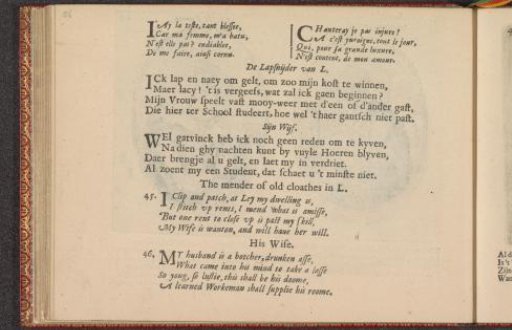 I Ay la teste, tant blessée,
Car ma femme, m'a batu,
N'est elle pas? endiablée,
De me faire, ainsi cornu.
CHanteray je pas injure?
CA c'est yuroigne, tout le jour,
Qui, pour sa grande luxure,
N'est content, de mon amour.
De Lapsnijder van L.
ICk lap en naey om gelt, om zoo mijn kost te winnen,
Maer lacy! 't is vergeefs, wat zal ick gaen beginnen?
Mijn Vrouw speelt vast mooy-weer met d'een of d'ander gast,
Die hier ter School studeert, hoe wel 't haer gantsch niet past.
Sijn Wijf.
WEl gatvinck heb ick noch geen reden om te kyven,
Na dien ghy nachten kunt by vuyle Hoeren blyven,
Daer brengje al u gelt, en laet my in verdriet.
Al zoent my een Student, dat schaet u 't minste niet.
The mender of old cloathes in L.
45. I Clip and patch, at Ley my dwelling is,
I stitch vp rents, I mend what is amisse,
But one rent to close vp is past my skill,
My Wife is wanton, and will have her will.
His Wife.
46. MY husband is a botcher, drunken asse,
What came into his mind to take a lasse
So yong, so lustie, this shall be his doome,
A learned Workeman shall supplie his roome.